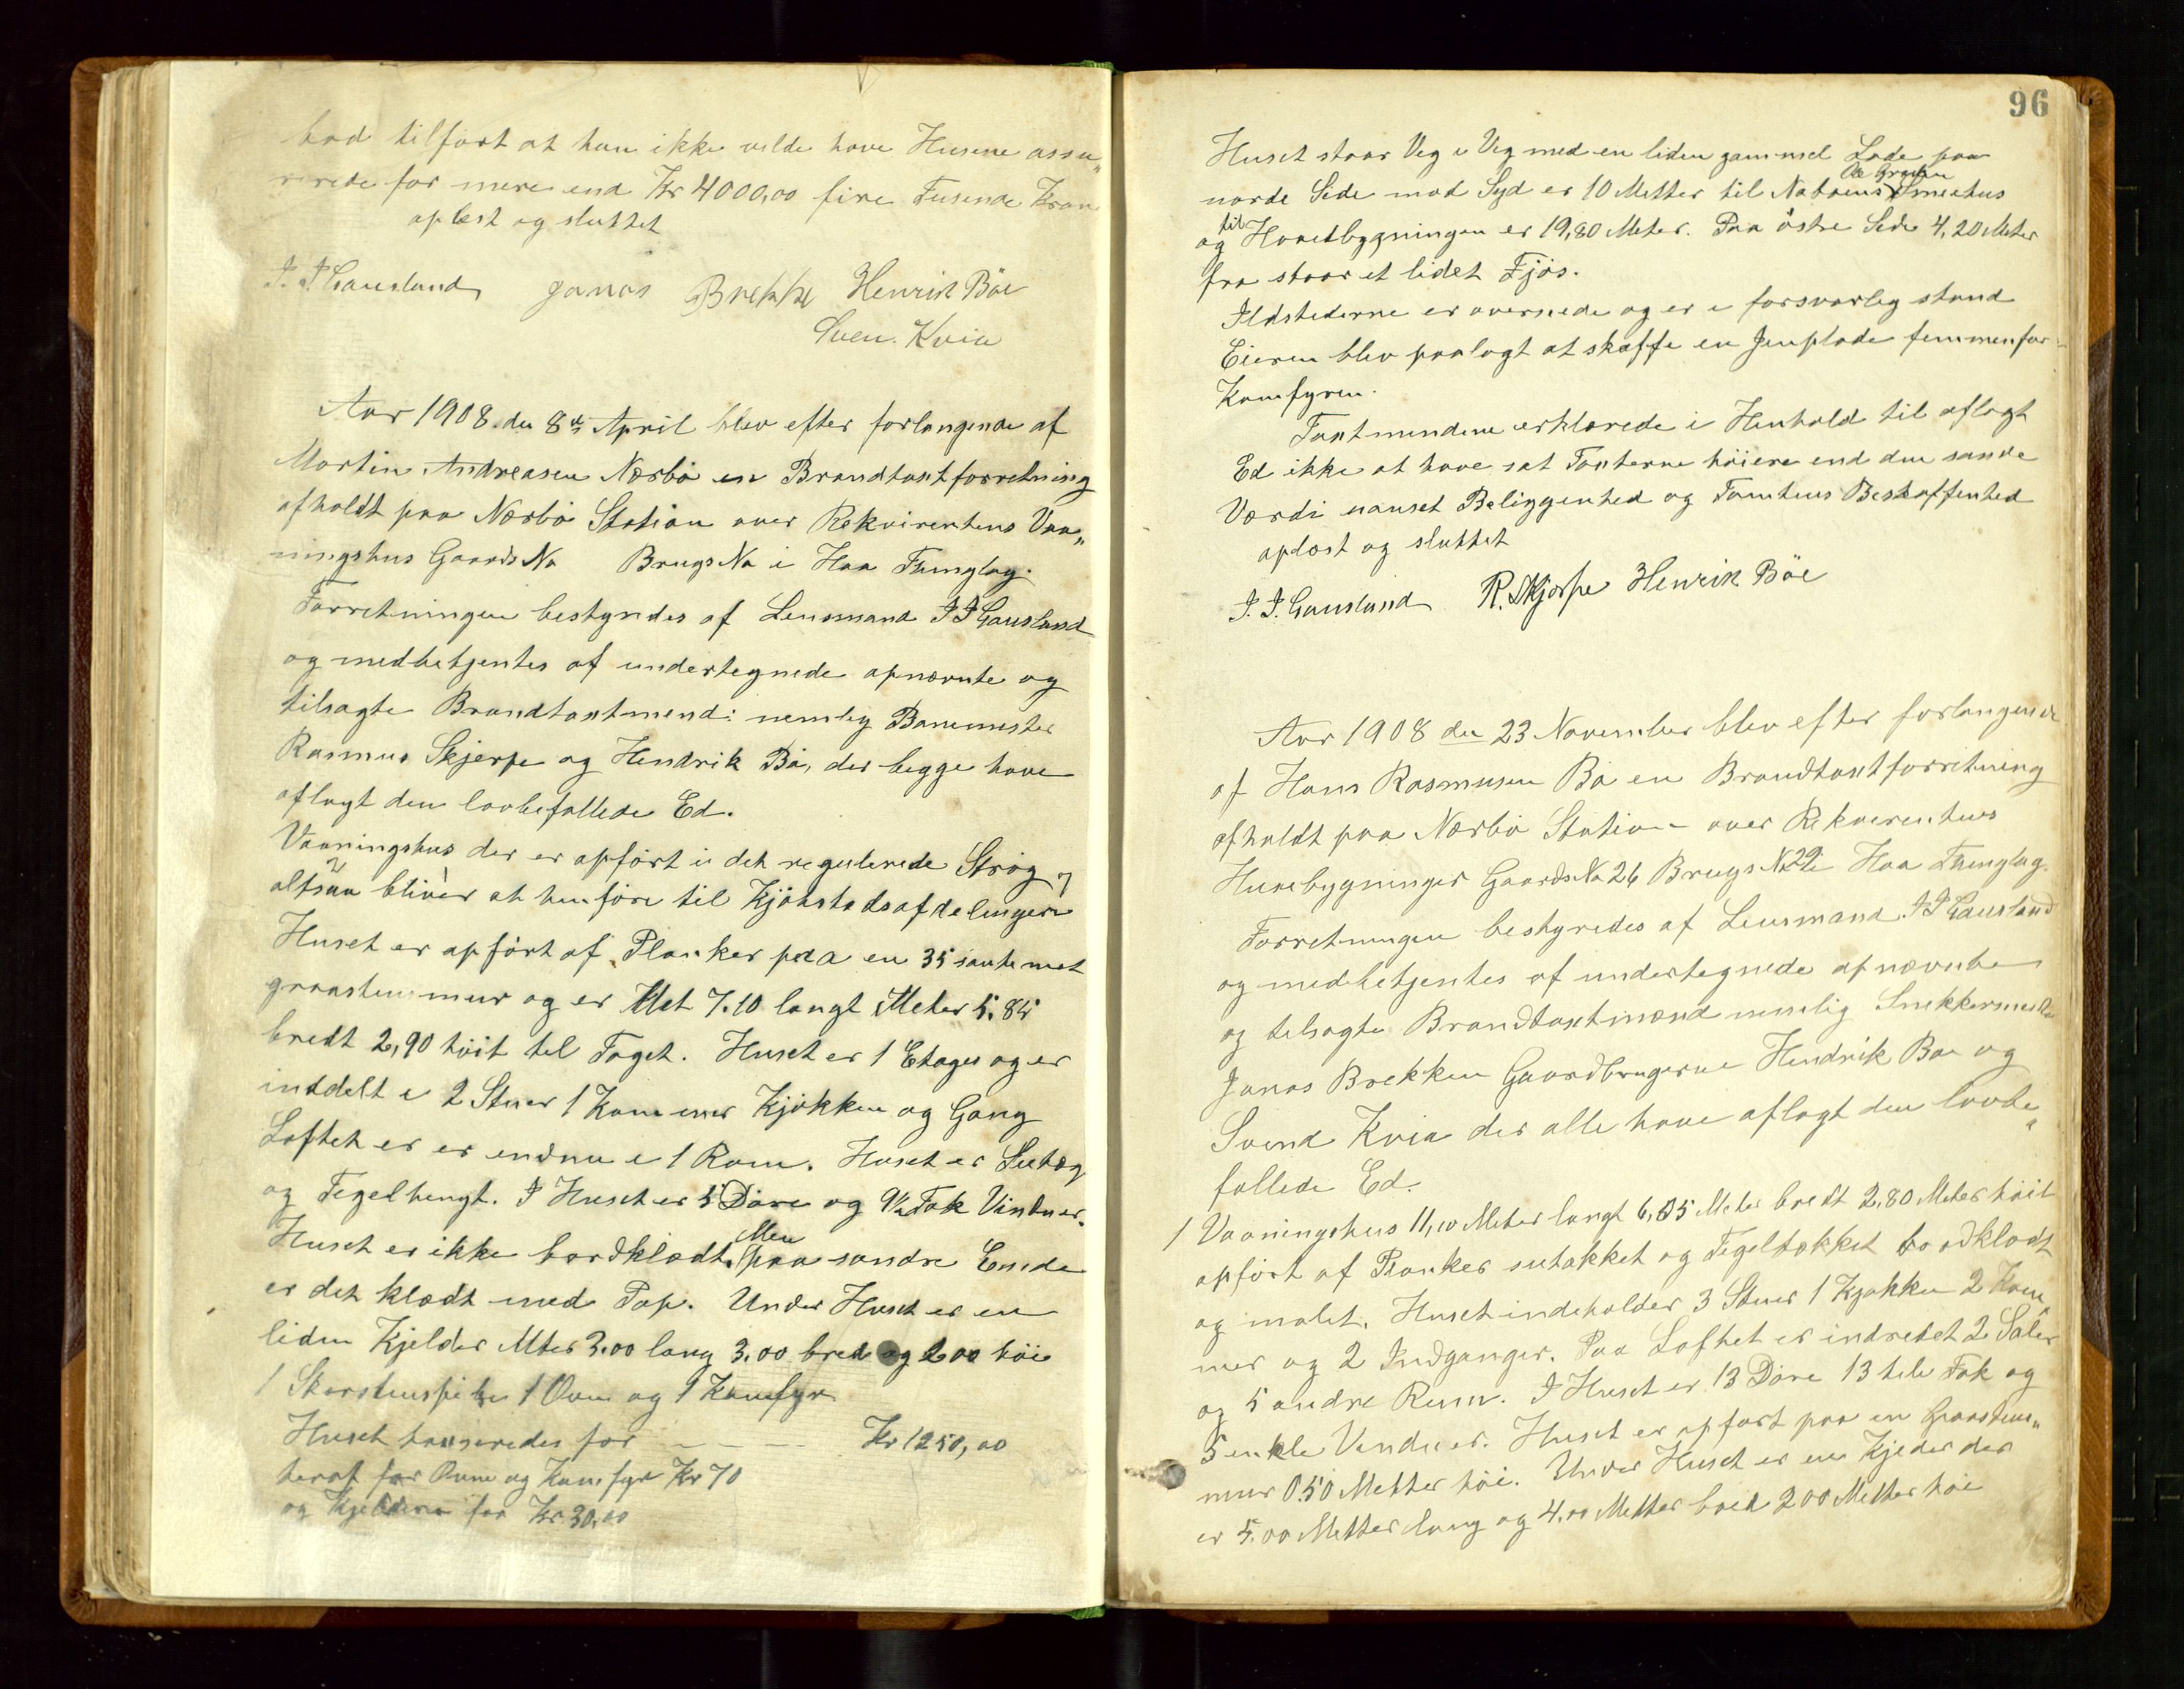 bad tilført at han ikke vilde have Husene assu„
rerede for mere end Kr 4000,00 fire Tusende Kron
oplæst og sluttet
J. J. Gausland Jonas Brekke Henrik Böe
Sven. Kvia
Aar 1908 den 8de April blev efter forlangende af
Martin Andreasen Nærbø en Brandtaxtforretning
afholdt paa Nærbø Station over Rekvirentens Vaa„
ningshus Gaards No Brugs No i Haa Thinglag.
Forretningen bestyredes af Lensmand J J Gausland
og medbetjentes af undertegnede opnævnte og
tilsagte Brandtaxtmend: nemlig Banemester
Rasmus Skjerpe og Hendrik Bø, der begge have
aflagt den lovbefallede Ed.
Vaaningshus der er opført i det regulerede Strøg
altsaa bliver at henføre til Kjøbstadsafdelingen
Huset er opført af Planker paa en 35 santemet
graastensmur og er Met 7.10 langt Meter 5.85
bredt 2,90 høit til Taget. Huset er 1 Etages og er
inddelt i 2 Stuer 1 Kammer Kjøkken og Gang
Loftet er er endnu i 1 Rom. Huset er
og Tegelhengt. I Huset er 5 Døre og 9½ Fak Vinduer.
Huset er ikke bordklædt. Men paa søndre Ende
er det klædt med Pap. Under Huset er en
liden Kjelder Mter 3.00 lang 3.00 bred og 2.00 høi
1 Skorstenspibe 1 Ovn og 1 Komfyr
Huset taxeredes for — — — — Kr 1250,00
heraf for Ovne og Komfyr Kr 70
og Kjelderen for Kr 30.00
96
Huset staar Veg i Veg med en liden gammel Lade paa
norde Side mod Syd er 10 Metter til Naboens Smedhus
og til Hovedbygningen er 19,80 Meter. Paa østre Side 4,20 Meter
fra staar et lidet Fjøs.
Ildstederne er overseede og er i forsvarlig stand
Eieren blev paalagt at skaffe en Jernplade femmen for
Komfyren.
Taxtmendene erklærede i Henhold til aflagt
Ed ikke at have sat Taxterne høiere end den sande
Værdi uanset Beliggenhed og Tomtens Beskaffenhed
oplæst og sluttet
J. J. Gausland R. Skjærpe Henrik Böe
Aar 1908 den 23 November blev efter forlangende
af Hans Rasmusen Bø en Brandtaxtforretning
afholdt paa Nærbø Station over Rekverentens
Husebygninger Gaards No 26 Brugs No 22 i Haa Thinglag.
Forretningen bestyredes af Lensmand J J Gausland
og medbetjentes af undertegnede opnævnte
og tilsagte Brandtaxtmænd nemlig Snekkermester
Jonas Brekken Gaardbrugerne Hendrik Bøe og
Svend Kvia der alle have aflagt den lovbe„
fallede Ed.
1 Vaaningshus 11,10 Meter langt 6,05 Meter bredt 2,80 Meter høit
opført af Planker sutækket og Tegeltækket bordklædt
og malet. Huset indeholder 3 Stuer 1 Kjøkken 2 Kam„
mer og 2 Indganger. Paa Loftet er indredet 2 Saler
og 5 andre Rum. I Huset er 13 Døre 13 hele Fak og
5 enkle Vinduer. Huset er opført paa en Graastens„
mur 0.50 Metter høi. Under Huset er en Kjeder der
er 5.00 Metter lang og 4.00 Metter bred 2.00 Metter høi